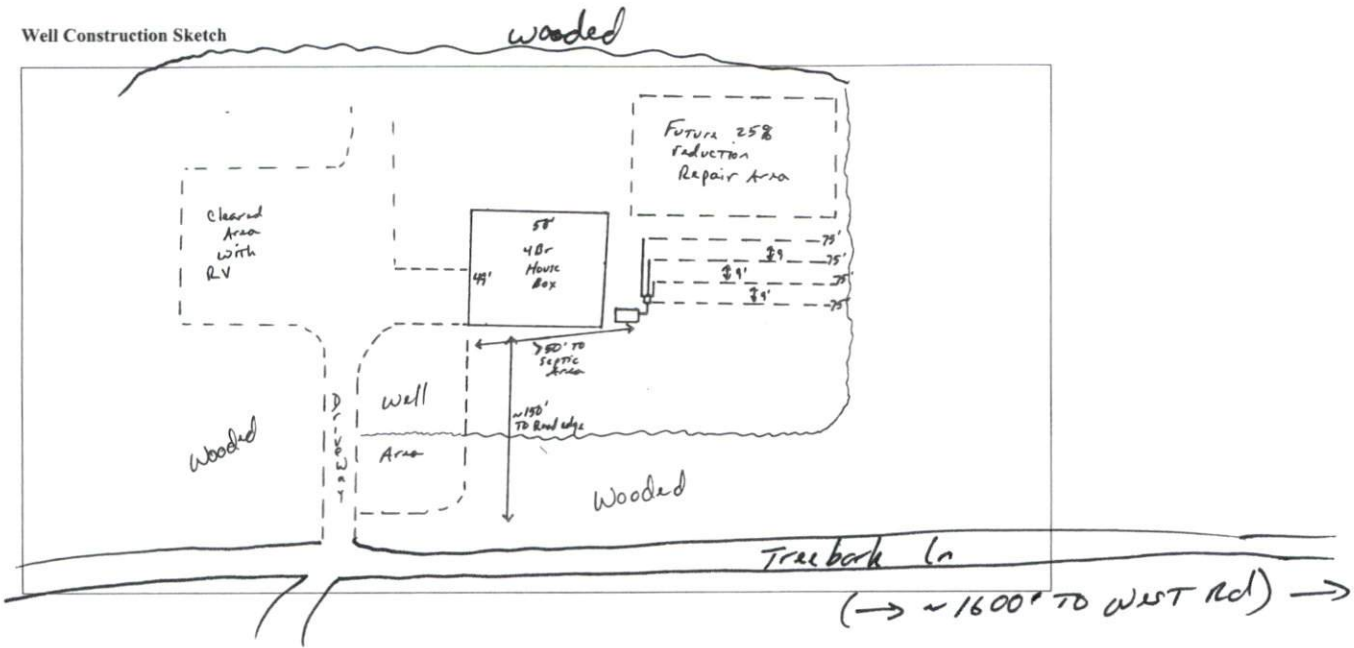 Well Construction Sketch
wooded
Future 25%
reduction
Repair Area
Cleared
Area
with
RV
50'
4Br
House
Box
49'
75'
9
75'
9'
75'
9'
75'
>50' TO
Septic
Area
Well
Area
~150'
TO Road edge
Driveway
Wooded
Wooded
Treebark Ln
(→ ~1600' TO WEST Rd) →